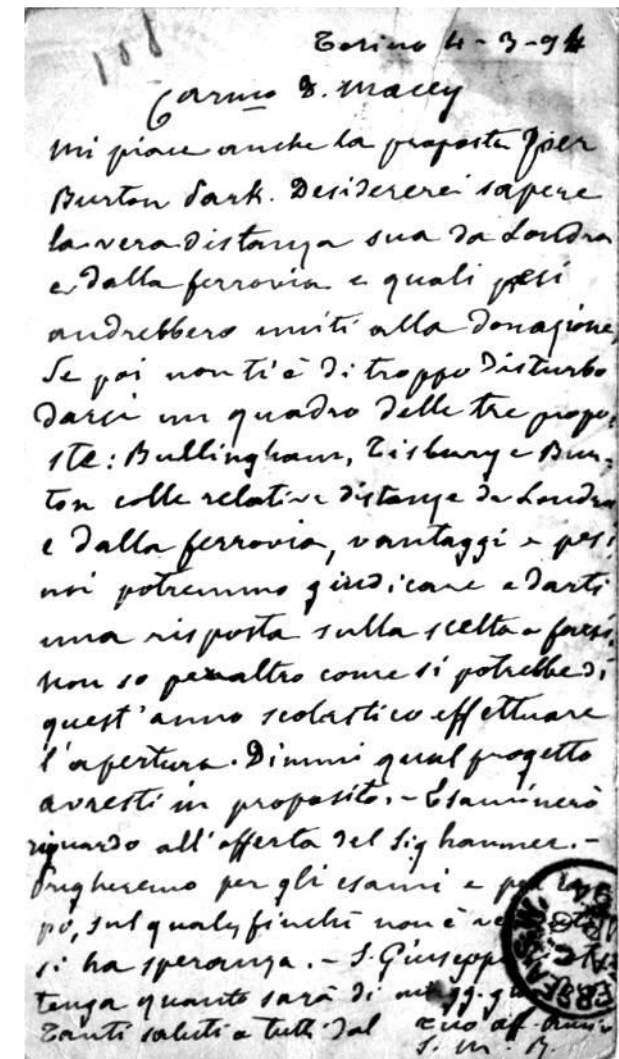 108
Torino 4-3-94
Carmo D. Macey
mi piace anche la proposta per
Burton Park. Desidererei sapere
la vera distanza sua da Londra
e dalla ferrovia e quali pesi
andrebbero uniti alla donazione.
Se poi non ti è di troppo disturbo
darci un quadro delle tre propo,
ste: Bullingham, Tisbury e Bur=
ton colle relative distanze da Londra
e dalla ferrovia, vantaggi e pesi,
noi potremmo giudicare e darti
una risposta sulla scelta a farsi.
Non so peraltro come si potrebbe di
quest'anno scolastico effettuare
l'apertura. Dimmi qual progetto
avresti in proposito. - Esaminerò
riguardo all'offerta del Sig hanmer. -
Pregheremo per gli esami e per
po, sul qual finchè non è
si ha speranza. - S. Giuseppe
tenga quanto sarà di
Tanti saluti a tutti dal tuo aff.
S. M. B.